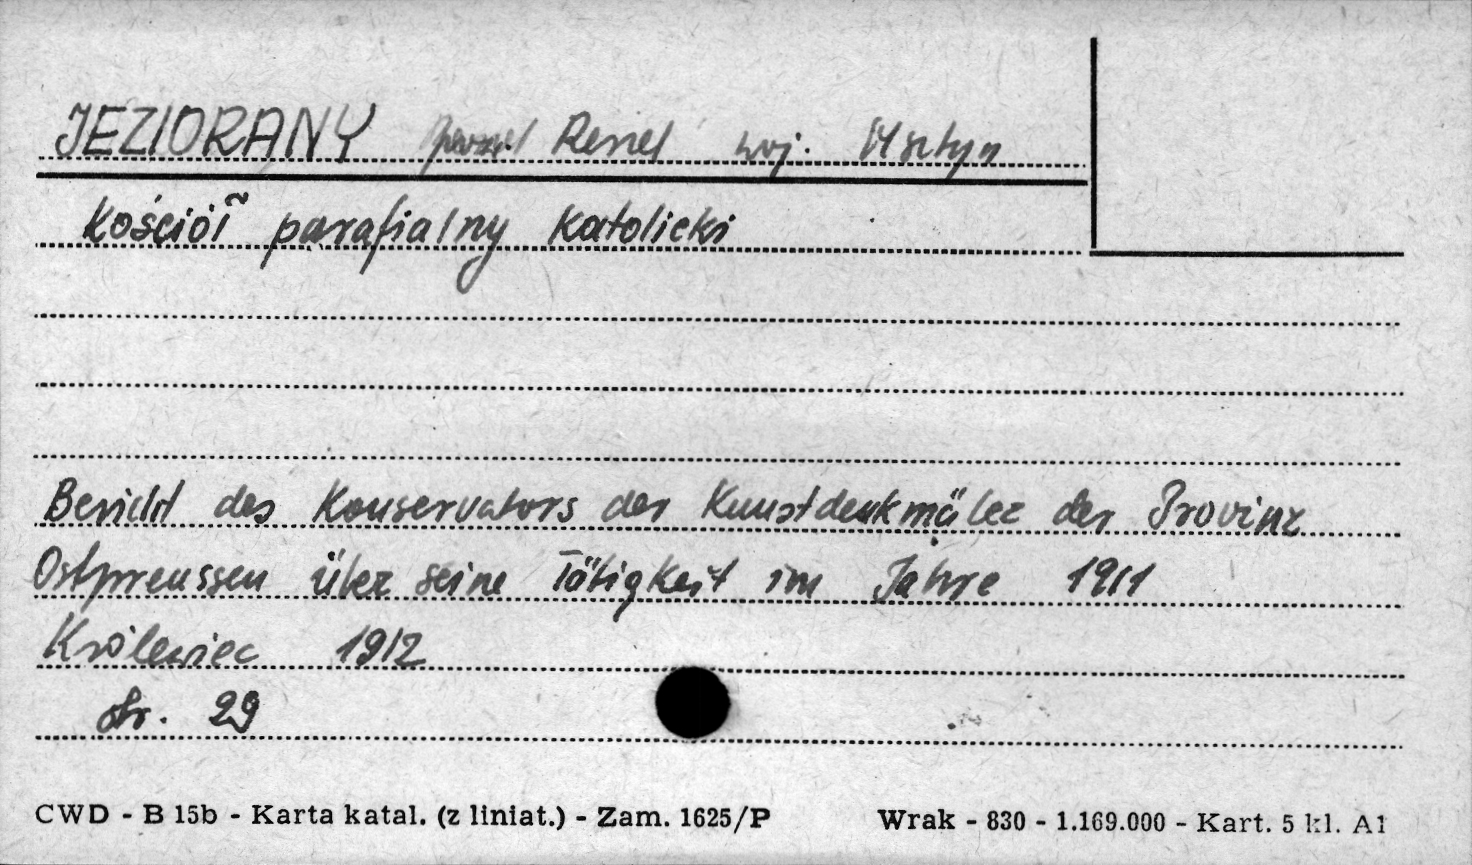 JEZIORANY powiat Reszel woj. Olsztyn
Kościół parafialny katolicki
Bericht des Konservators der Kunstdenkmäler der Provinz
Ostpreussen über seine Tätigkeit im Jahre 1911
Królewiec 1912
str. 29
CWD - B 15b - Karta katal. (z liniat.) - Zam. 1625/P Wrak - 830 - 1.169.000 - Kart. 5 kl. A1